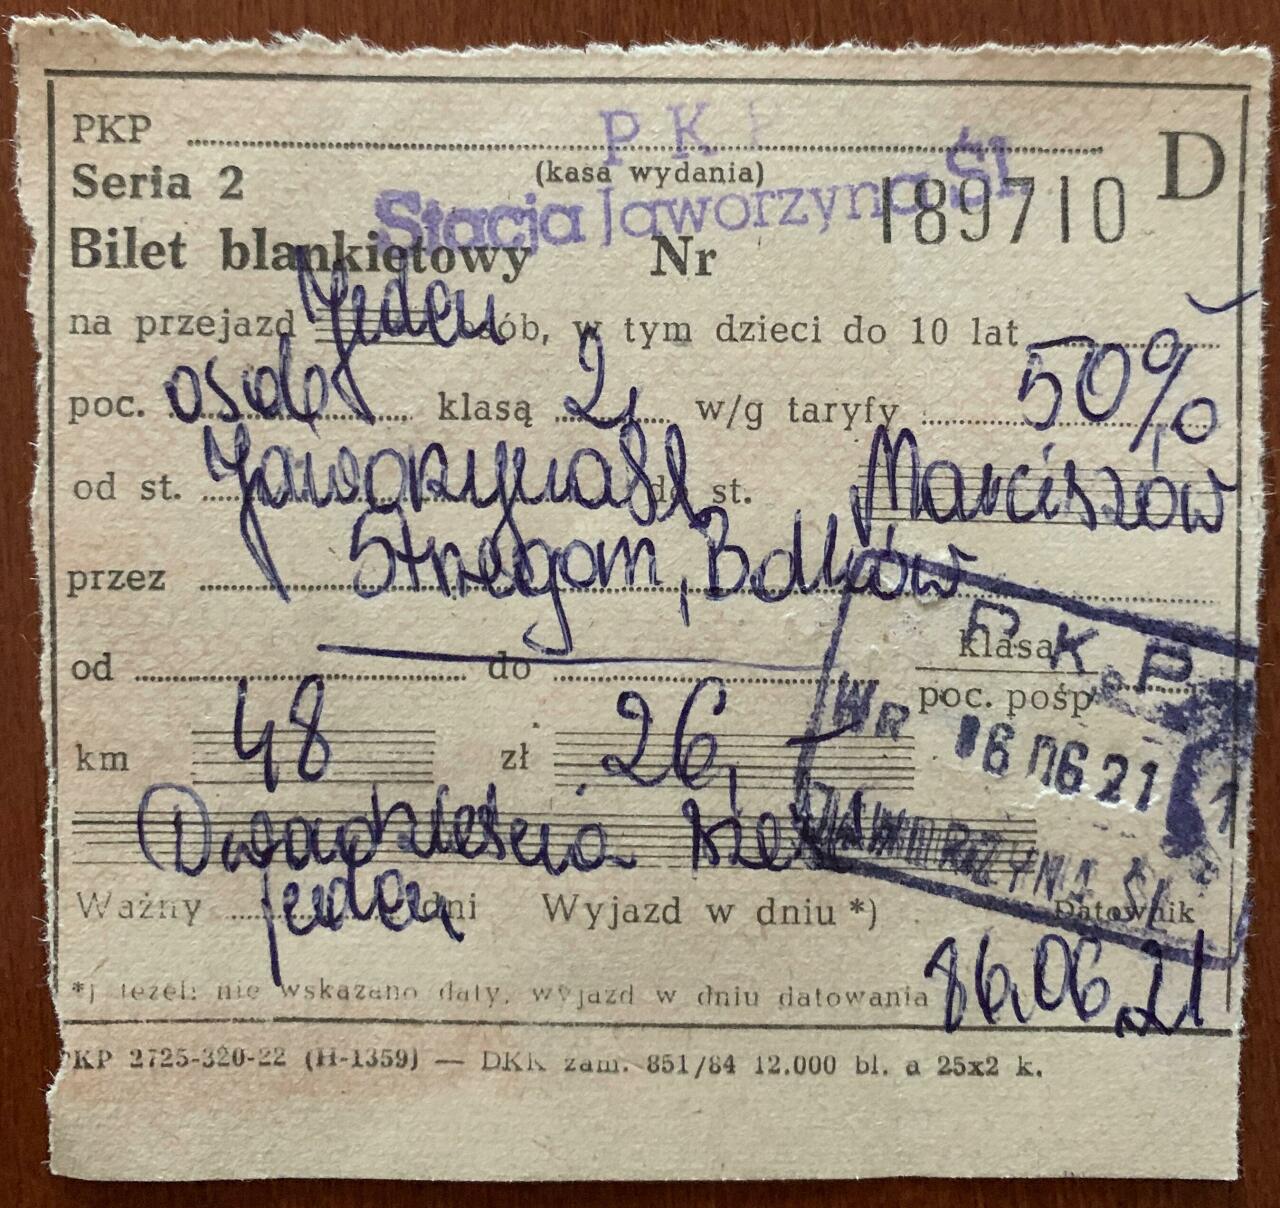 PKP P K P
(kasa wydania)
D
Seria 2 Stacja Jaworzyna Śl
Bilet blankietowy Nr 189710
na przejazd Jeden osób, w tym dzieci do 10 lat
poc. osob klasą 2, w/g taryfy 50%
od st. Jaworzyna Śl do st. Marciszów
przez Strzegom, Bolków
od do klasa
poc. pośp.
P.K.P
km 48 zł 26,—
WR
86 06 21
1
Dwadzieścia sześć
JAWORZYNA ŚL
Ważny jeden dni Wyjazd w dniu *) Datownik
86.06.21
*) jeżeli nie wskazano daty, wyjazd w dniu datowania
PKP 2725-320-22 (H-1359) — DKK zam. 851/84 12.000 bl. a 25x2 k.